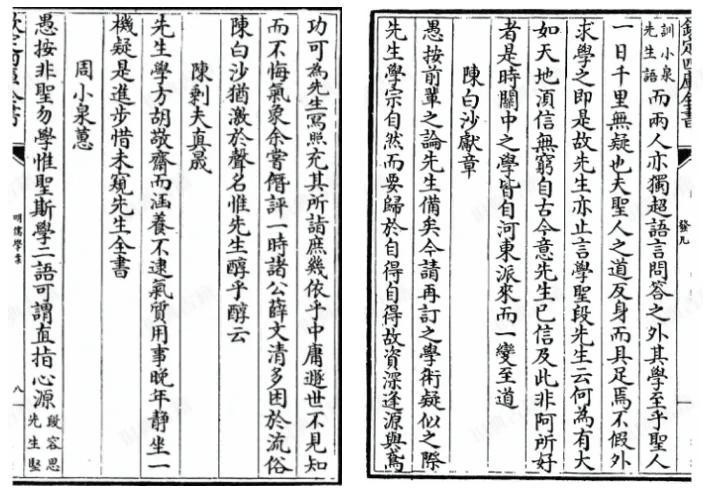 功可為先生寫照充其所詣庶幾依乎中庸遯世不見知
而不悔氣象余嘗僭評一時諸公薛文清多困於流俗
陳白沙猶激於聲名惟先生醇乎醇云
陳剩夫真晟
先生學方胡敬齋而涵養不逮氣質用事晚年靜坐一
機疑是進步惜未窺先生全書
周小泉蕙
愚按非聖勿學惟聖斯學二語可謂直指心源段容思先生堅
欽定四庫全書
明儒學案
八
欽定四庫全書
發凡
訓小泉先生語而兩人亦獨超語言問答之外其學至乎聖人
一日千里無疑也夫聖人之道反身而具足焉不假外
求學之即是故先生亦止言學聖段先生云何為有大
如天地湏信無窮自古今意先生已信及此非阿所好
者是時關中之學皆自河東派來而一變至道
陳白沙獻章
愚按前輩之論先生備矣今請再訂之學術疑似之際
先生學宗自然而要歸於自得自得故資深逢源與鳶